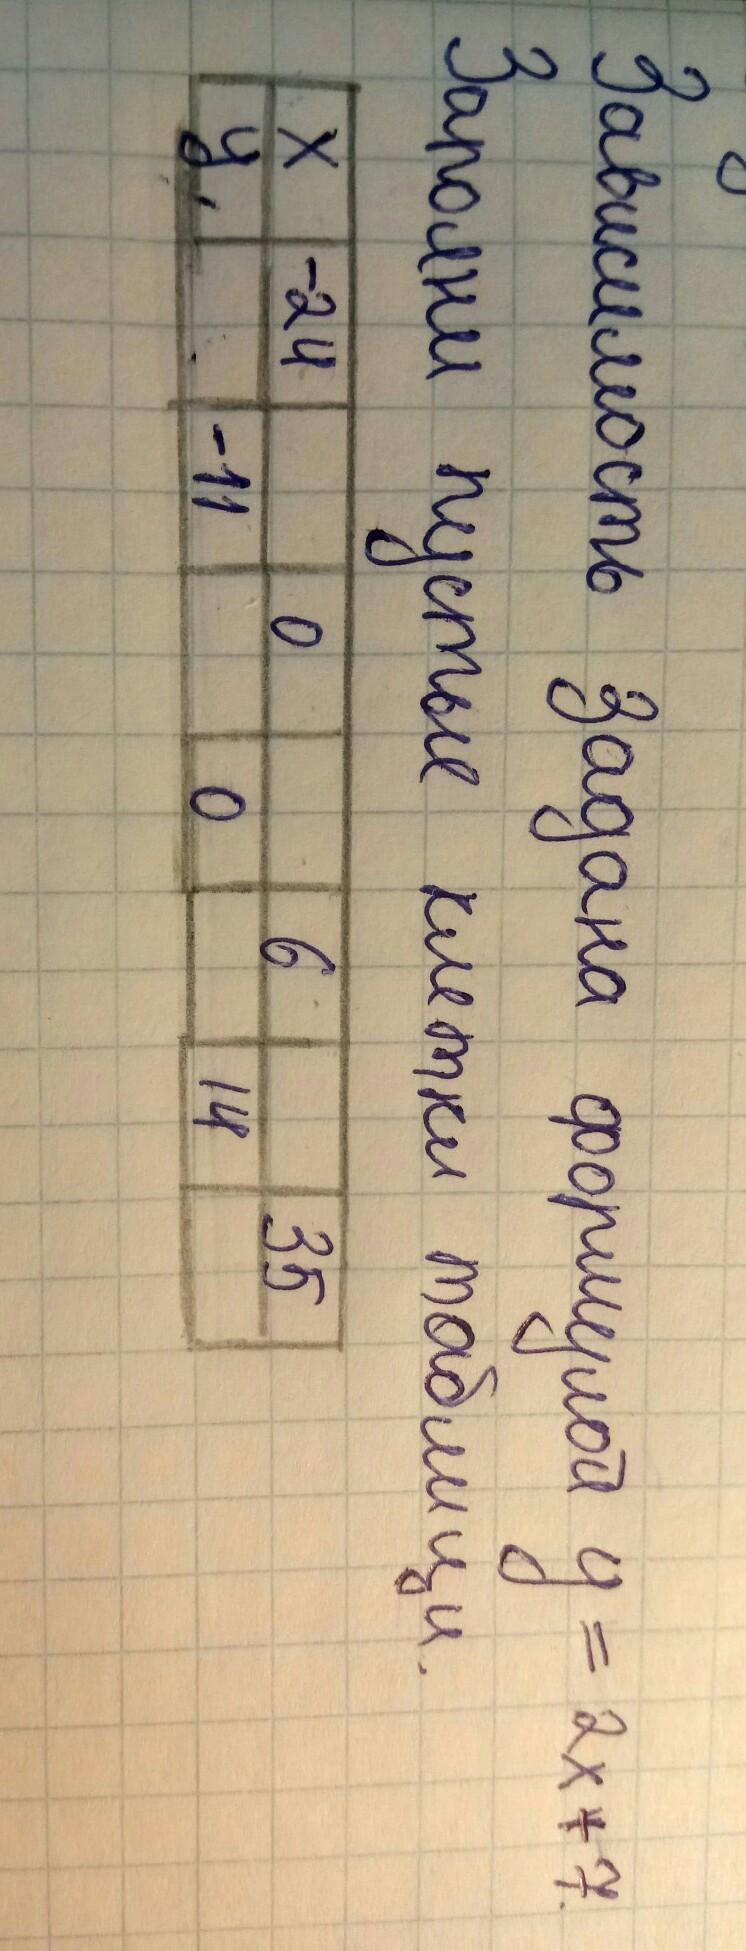 Зависимость задана формулой y = 2x + 7.
Заполни пустые клетки таблици.
x -24 0 6 35
y -11 0 14